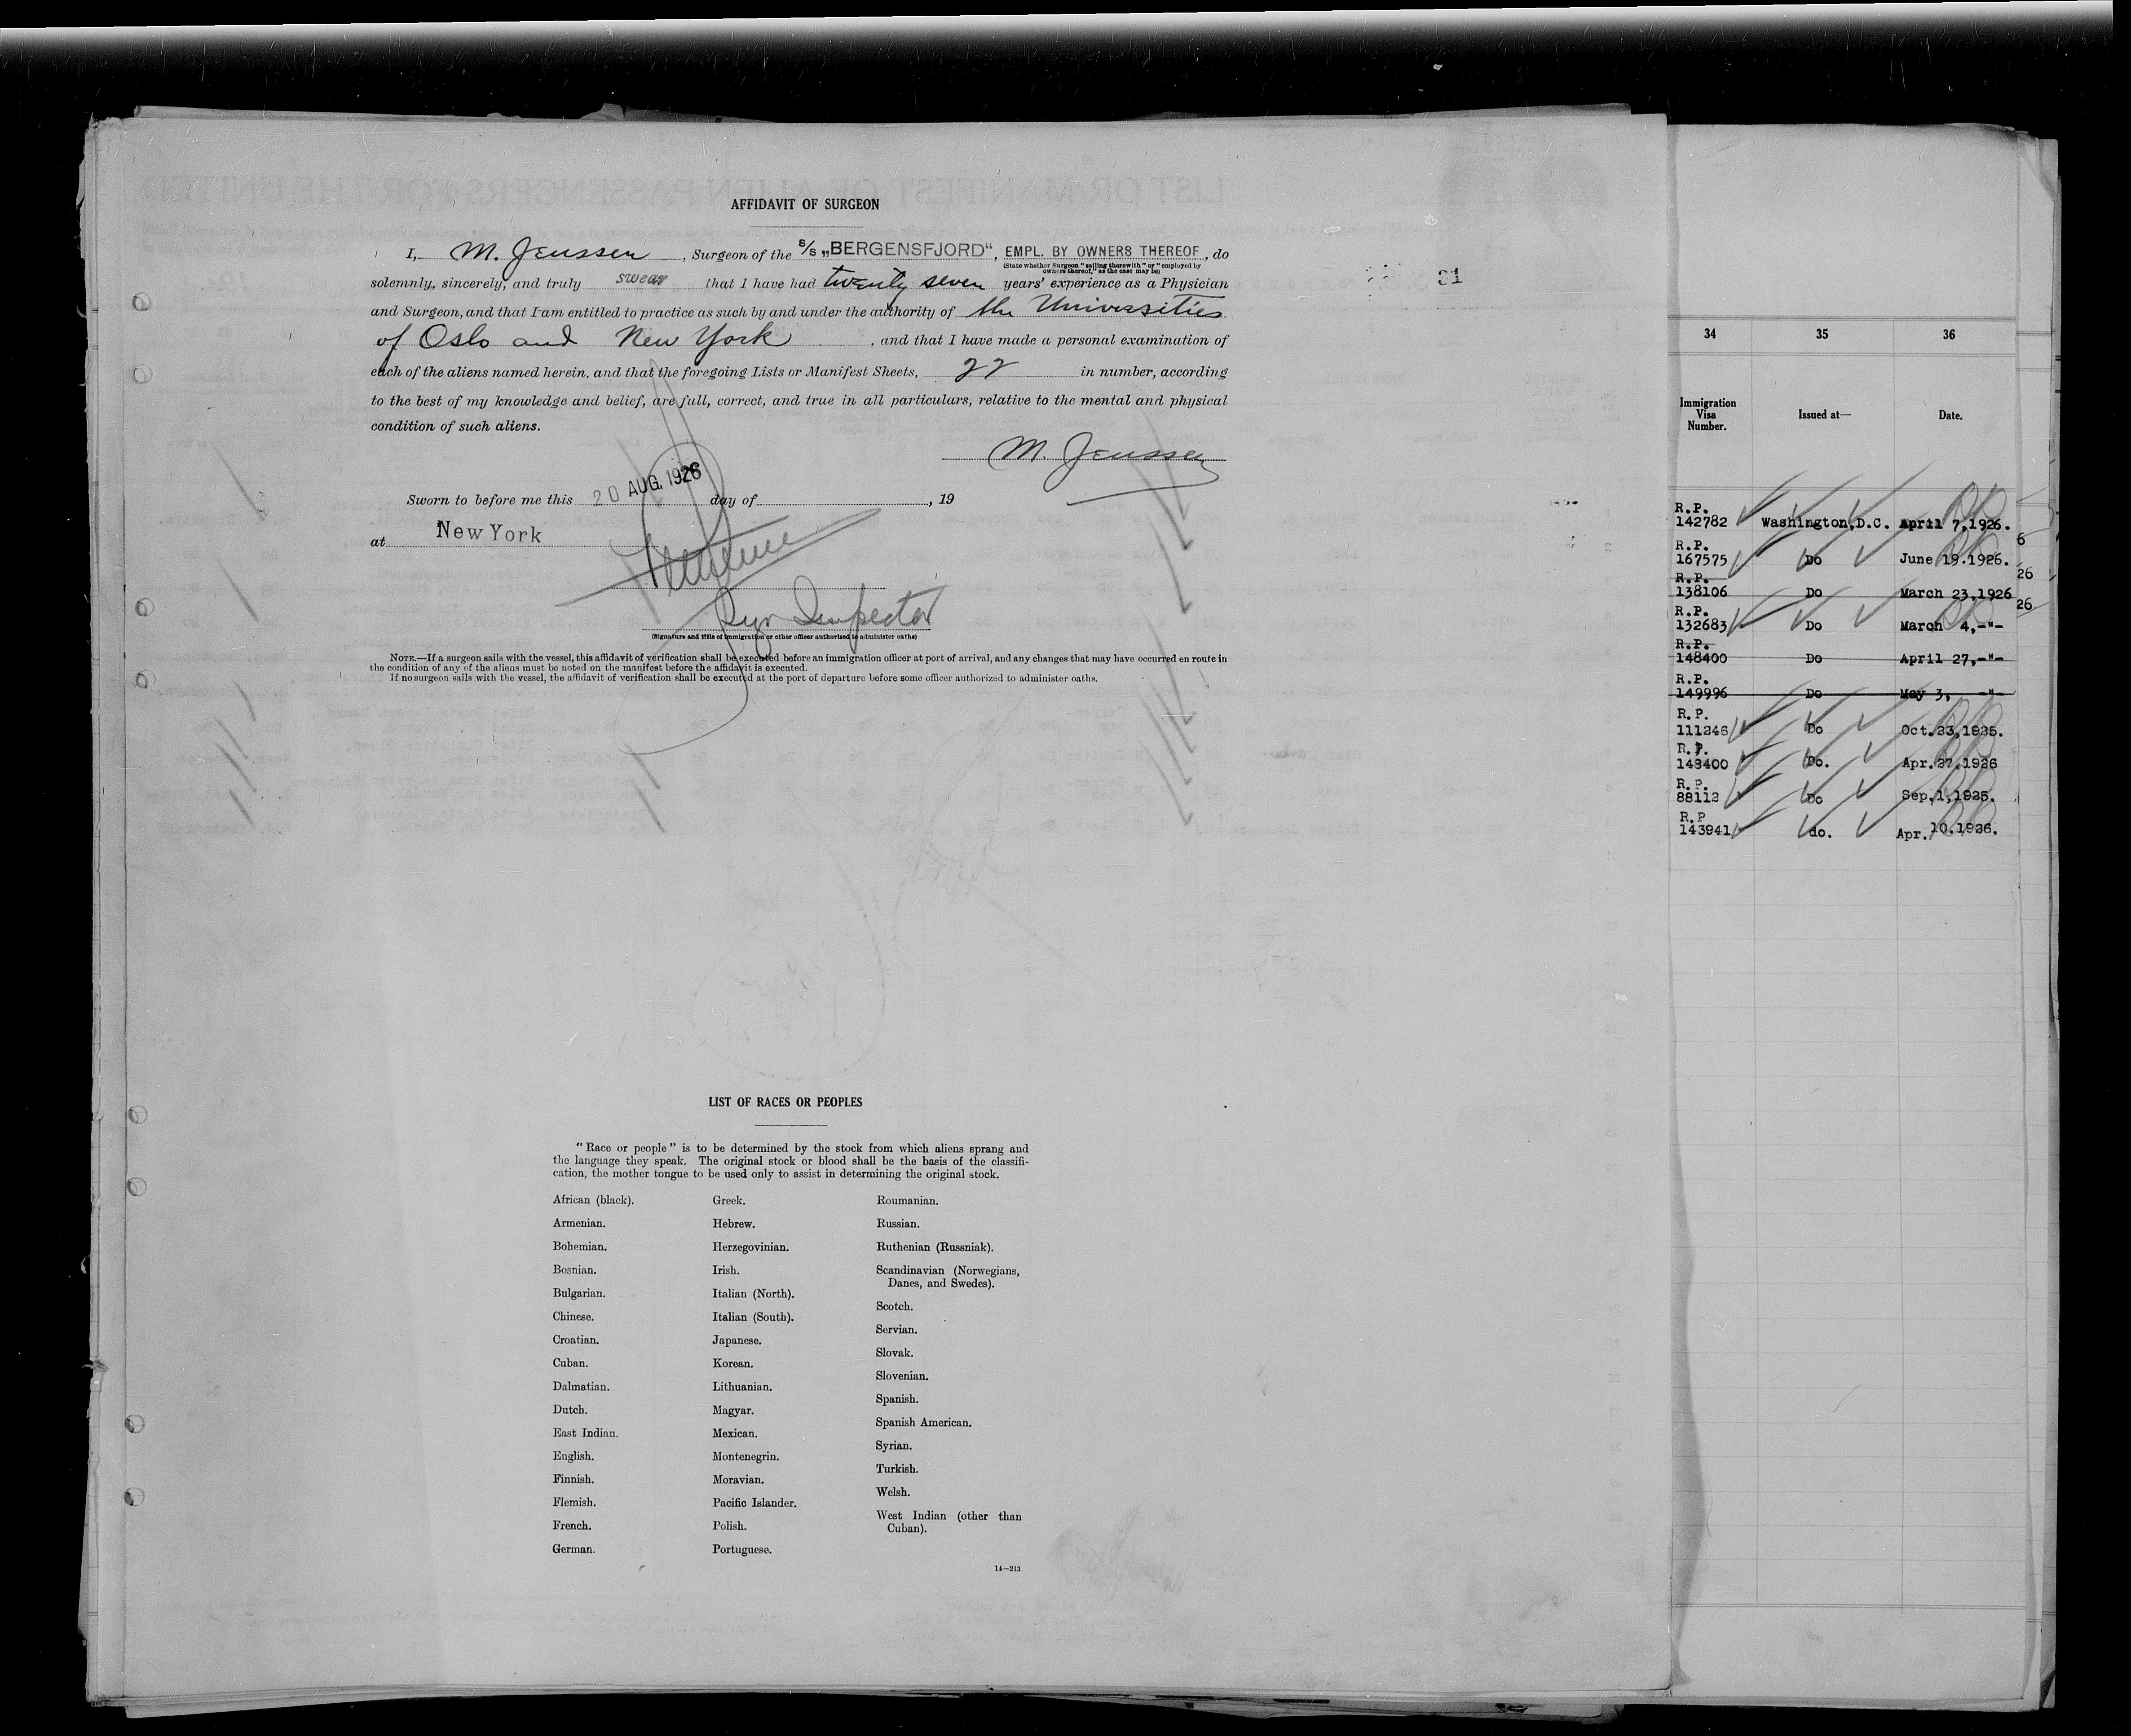 AFFIDAVIT OF SURGEON
I, M. Jenssen, Surgeon of the S/S „BERGENSFJORD“, EMPL. BY OWNERS THEREOF, do
(State whether Surgeon "sailing therewith" or "employed by
owners thereof," as the case may be)
solemnly, sincerely, and truly swear that I have had twenty seven years' experience as a Physician
and Surgeon, and that I am entitled to practice as such by and under the authority of the Universities
of Oslo and New York, and that I have made a personal examination of
each of the aliens named herein, and that the foregoing Lists or Manifest Sheets, 22 in number, according
to the best of my knowledge and belief, are full, correct, and true in all particulars, relative to the mental and physical
condition of such aliens.
M. Jenssen
Sworn to before me this 20 AUG. 1926 day of , 19
at New York
Inspector
(Signature and title of immigration or other officer authorized to administer oaths)
NOTE.—If a surgeon sails with the vessel, this affidavit of verification shall be executed before an immigration officer at port of arrival, and any changes that may have occurred en route in
the condition of any of the aliens must be noted on the manifest before the affidavit is executed.
If no surgeon sails with the vessel, the affidavit of verification shall be executed at the port of departure before some officer authorized to administer oaths.
LIST OF RACES OR PEOPLES
"Race or people" is to be determined by the stock from which aliens sprang and
the language they speak. The original stock or blood shall be the basis of the classifi-
cation, the mother tongue to be used only to assist in determining the original stock.
African (black).
Armenian.
Bohemian.
Bosnian.
Bulgarian.
Chinese.
Croatian.
Cuban.
Dalmatian.
Dutch.
East Indian.
English.
Finnish.
Flemish.
French.
German.
Greek.
Hebrew.
Herzegovinian.
Irish.
Italian (North).
Italian (South).
Japanese.
Korean.
Lithuanian.
Magyar.
Mexican.
Montenegrin.
Moravian.
Pacific Islander.
Polish.
Portuguese.
Roumanian.
Russian.
Ruthenian (Russniak).
Scandinavian (Norwegians,
Danes, and Swedes).
Scotch.
Servian.
Slovak.
Slovenian.
Spanish.
Spanish American.
Syrian.
Turkish.
Welsh.
West Indian (other than
Cuban).
14—213
34 35 36
Immigration
Visa
Number.
Issued at—
Date.
R.P.
142782 Washington, D.C. April 7, 1926.
6
R.P.
167575 Do June 19.1926.
26
R.P.
138106 Do March 23,1926
26
R.P.
132683 Do March 4,-"-
R.P.
148400 Do April 27,-"-
R.P.
149996 Do May 3, -"-
R.P.
111246 Do Oct.23,1925.
R.P.
148400 Do. Apr.27,1926
R.P.
88112 Do Sep.1,1925.
R.P
143941 do. Apr.10.1926.